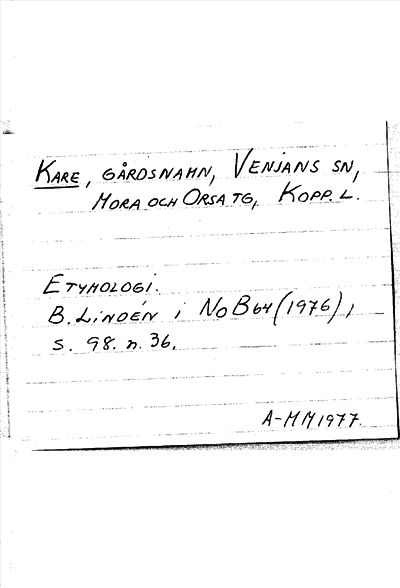 KARE, GÅRDSNAMN, VENJANS SN,
MORA OCH ORSA TG, KOPP. L.
ETYMOLOGI.
B. LINDÉN i NoB 64 (1976),
s. 98. n. 36.
A-MM 1977.